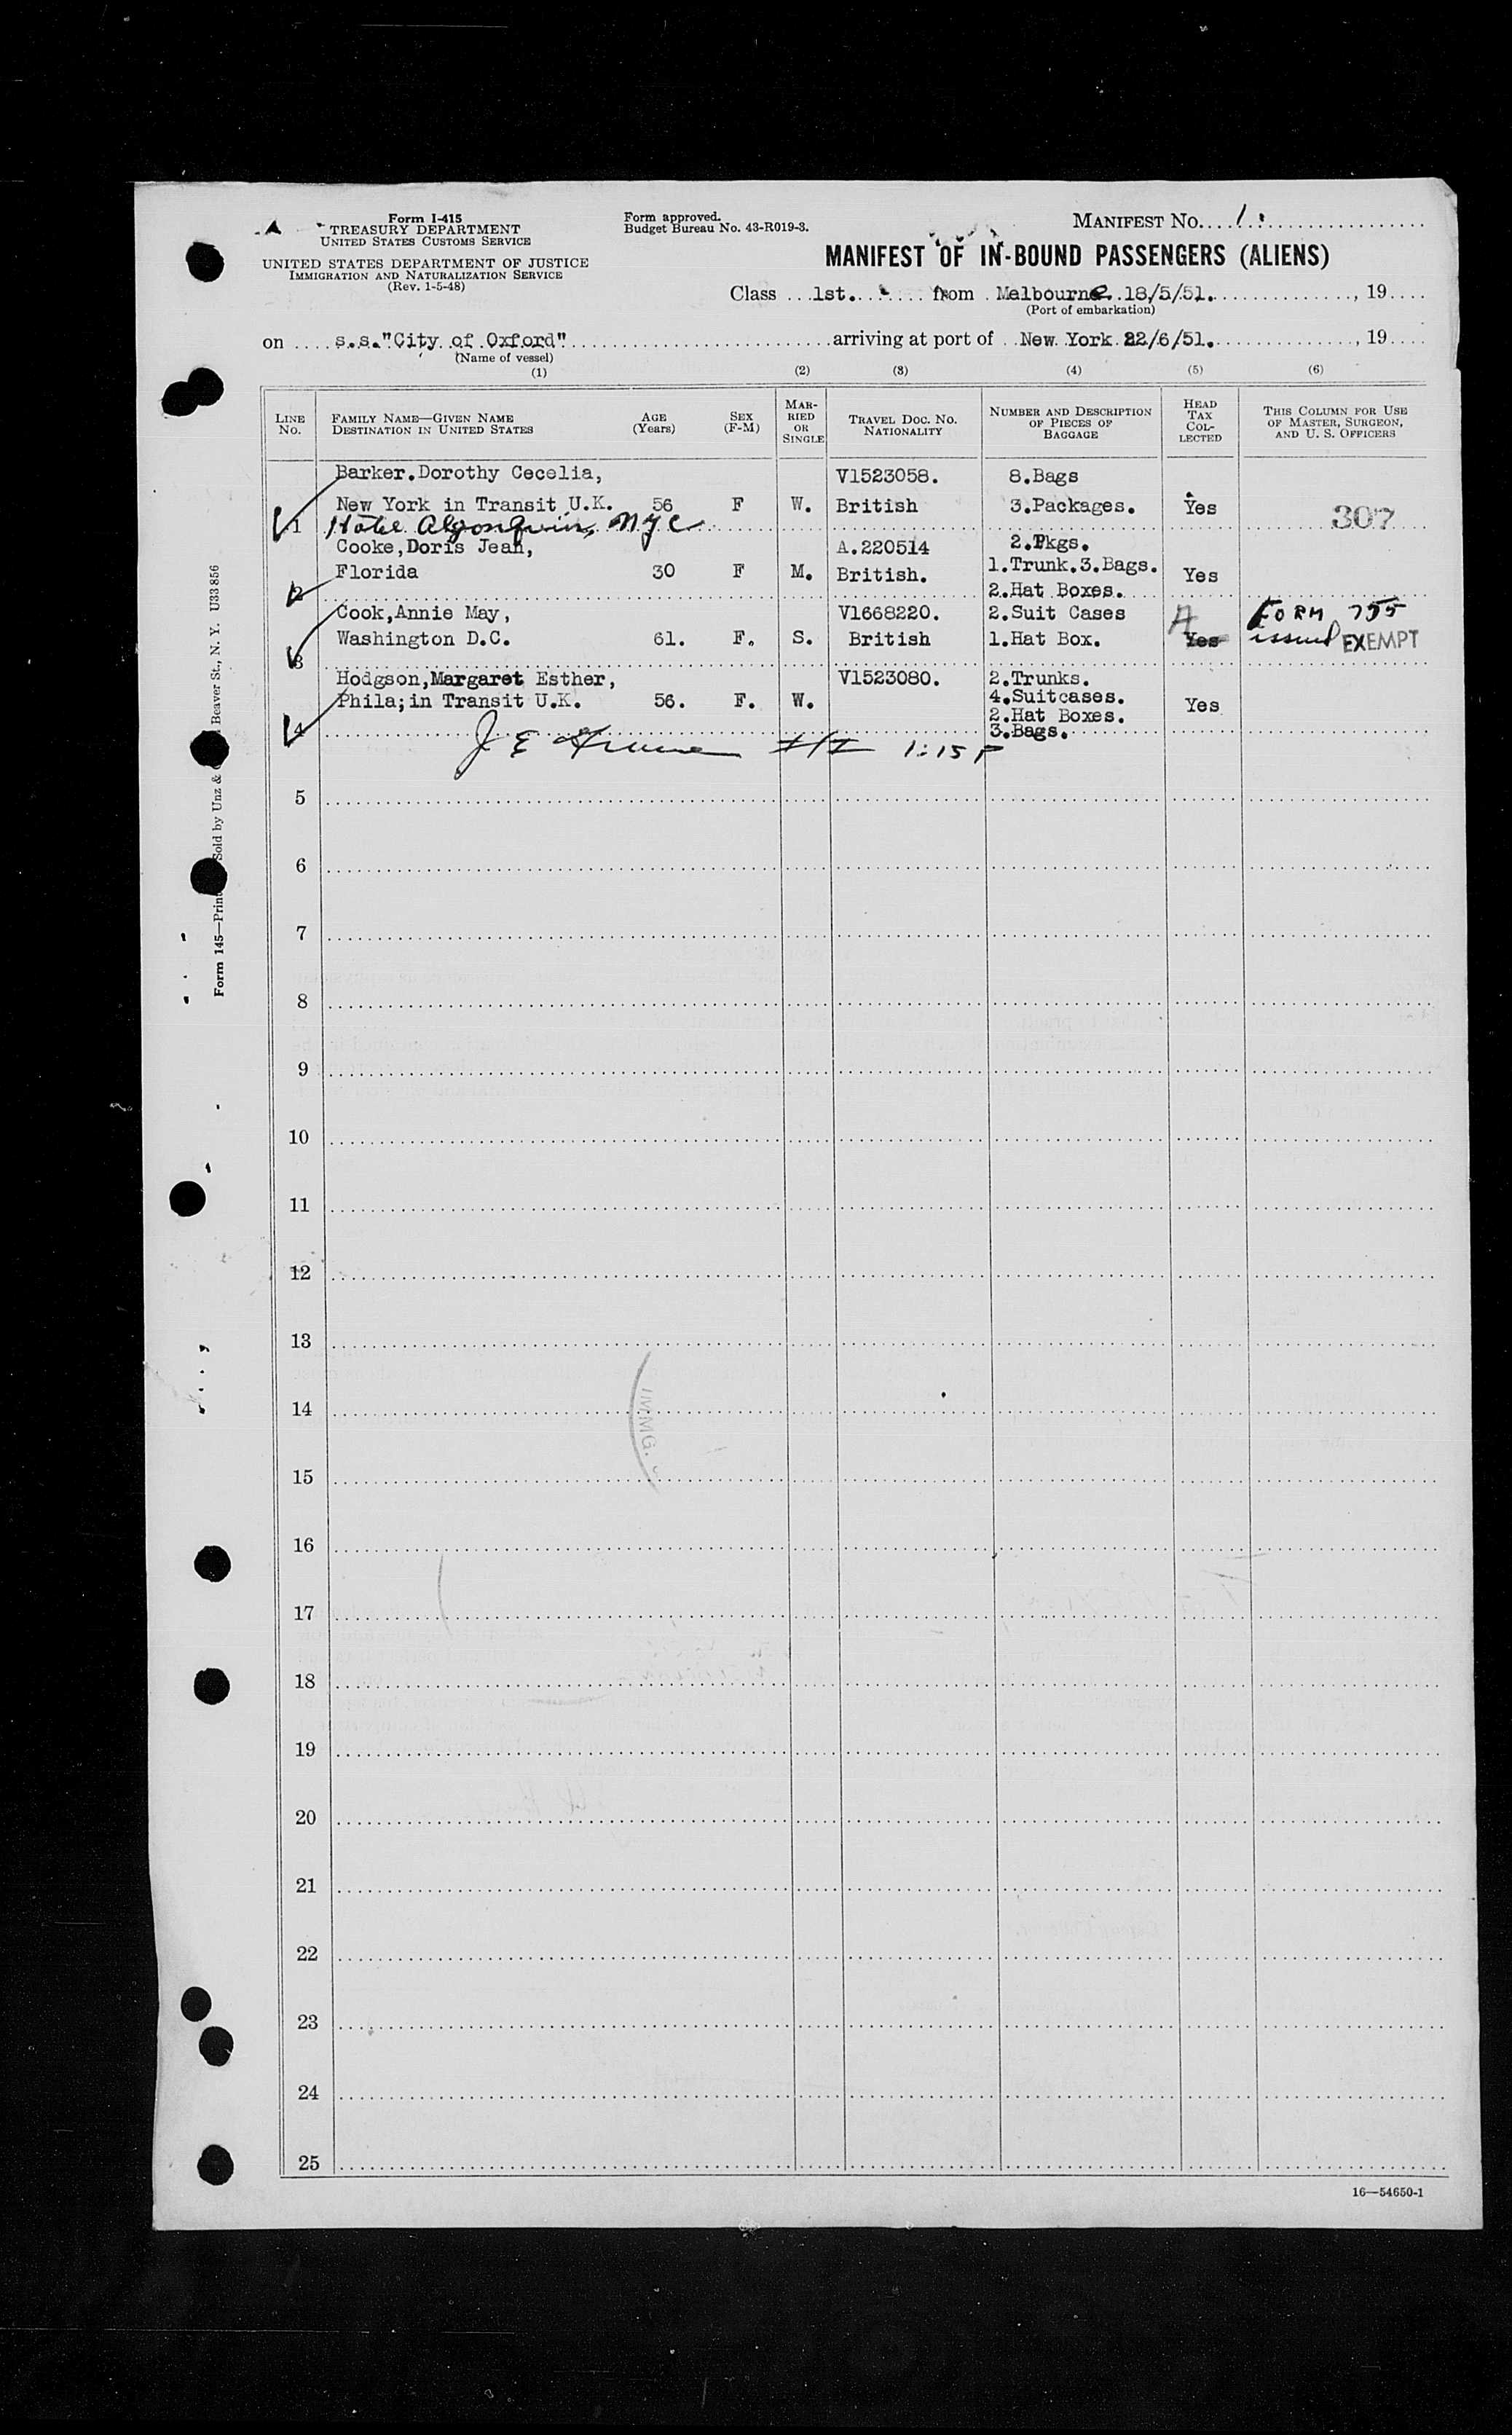 A
Form I-415
TREASURY DEPARTMENT
UNITED STATES CUSTOMS SERVICE
UNITED STATES DEPARTMENT OF JUSTICE
IMMIGRATION AND NATURALIZATION SERVICE
(Rev. 1-5-48)
Form approved.
Budget Bureau No. 43-R019-3.
MANIFEST NO. 1
MANIFEST OF IN-BOUND PASSENGERS (ALIENS)
Class 1st. from Melbourne 18/5/51. , 19
(Port of embarkation)
on s.s."City of Oxford" arriving at port of New York 22/6/51. , 19
(Name of vessel)
(1) (2) (3) (4) (5) (6)
LINE NO. FAMILY NAME—GIVEN NAME DESTINATION IN UNITED STATES AGE (Years) SEX (F-M) MARRIED OR SINGLE TRAVEL DOC. NO. NATIONALITY NUMBER AND DESCRIPTION OF PIECES OF BAGGAGE HEAD TAX COLLECTED THIS COLUMN FOR USE OF MASTER, SURGEON, AND U. S. OFFICERS
Barker.Dorothy Cecelia, V1523058. 8.Bags
New York in Transit U.K. 56 F W. British 3.Packages. Yes
1 Hotel Algonquin, NYC 307
Cooke,Doris Jean, A.220514 2.Pkgs.
Florida 30 F M. British. 1.Trunk.3.Bags. Yes
2 2.Hat Boxes.
Cook,Annie May, V1668220. 2.Suit Cases A FORM 755
Washington D.C. 61. F. S. British 1.Hat Box. Yes issued EXEMPT
3
Hodgson,Margaret Esther, V1523080. 2.Trunks.
Phila;in Transit U.K. 56. F. W. 4.Suitcases. Yes
2.Hat Boxes.
4 3.Bags.
J E 1:15 P
5
6
7
8
9
10
11
12
13
14
15
16
17
18
19
20
21
22
23
24
25
IMMIG.
16—54650-1
Form 145—Sold by Unz & Beaver St., N. Y. U33856